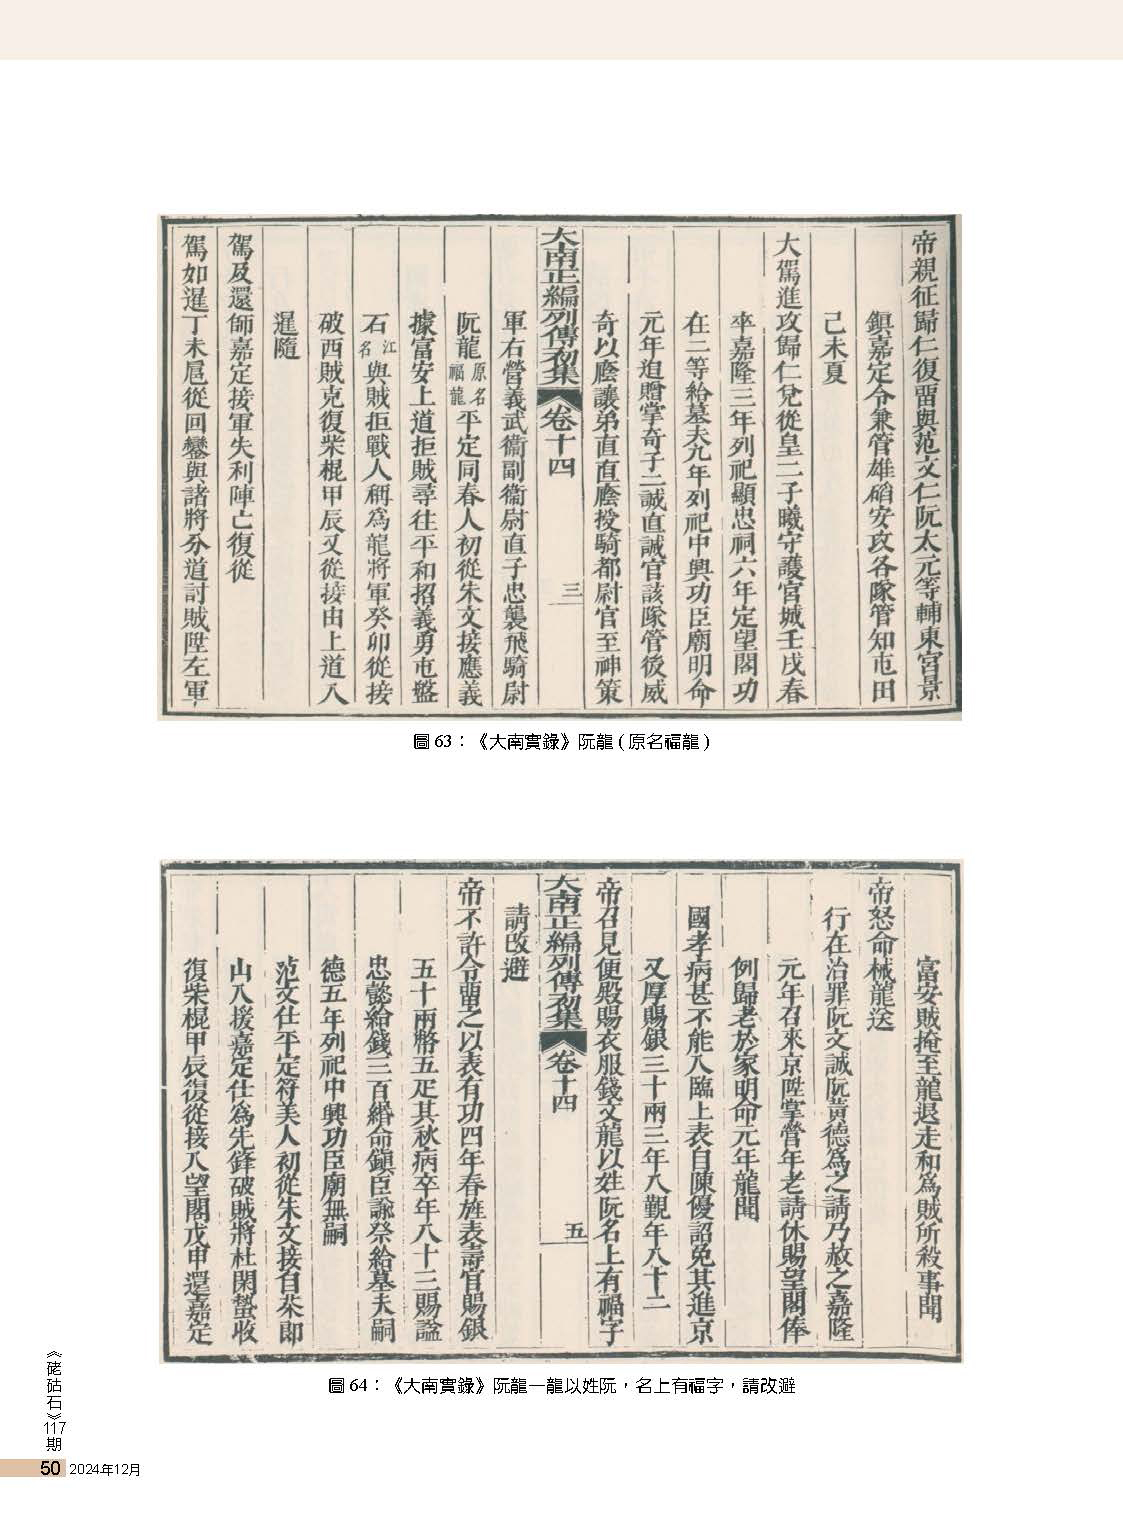 帝親征歸仁復畱與范文仁阮太元等輔東宮景
鎮嘉定令兼管雄碯安攻各隊管知屯田
己未夏
大駕進攻歸仁兌從皇二子曦守護宮城壬戌春
卒嘉隆三年列祀顯忠祠六年定望閣功
在二等給墓夫九年列祀中興功臣廟明命
元年追贈掌奇子二誠直誠官該隊管後威
奇以廕讓弟直直廕授騎都尉官至神策
大南正編列傳初集 卷十四 三
軍右營義武衞副衞尉直子忠襲飛騎尉
阮龍原名福龍平定同春人初從朱文接應義
據富安上道拒賊尋往平和招義勇屯盤
石江名與賊拒戰人稱爲龍將軍癸卯從接
破西賊克復柴棍甲辰又從接由上道入
暹隨
駕及還師嘉定接軍失利陣亡復從
駕如暹丁未扈從回鑾與諸將分道討賊陞左軍
圖 63：《大南實錄》阮龍 ( 原名福龍 )
富安賊掩至龍退走和爲賊所殺事聞
帝怒命械龍送
行在治罪阮文誠阮黃德爲之請乃赦之嘉隆
元年召來京陞掌營年老請休賜望閣俸
例歸老於家明命元年龍聞
國孝病甚不能入臨上表自陳優詔免其進京
又厚賜銀三十兩三年入覲年八十二
帝召見便殿賜衣服錢文龍以姓阮名上有福字
大南正編列傳初集 卷十四 五
請改避
帝不許令畱之以表有功四年春旌表壽官賜銀
五十兩幣五疋其秋病卒年八十三賜諡
忠懿給錢三百緡命鎮臣諭祭給墓夫嗣
德五年列祀中興功臣廟無嗣
范文仕平定符美人初從朱文接自茶郎
山入援嘉定仕爲先鋒破賊將杜閑蟄收
復柴棍甲辰復從接入望閣戊申還嘉定
圖 64：《大南實錄》阮龍—龍以姓阮，名上有福字，請改避
《硓𥑮石》117期
50 2024年12月